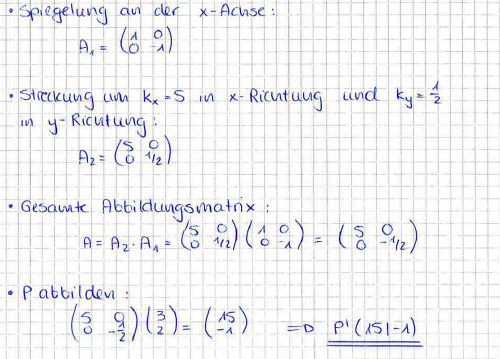 • Spiegelung an der x-Achse:
A₁ = (1 0 / 0 -1)
• Streckung um kₓ = 5 in x-Richtung und k_y = 1/2
in y-Richtung:
A₂ = (5 0 / 0 1/2)
• Gesamte Abbildungsmatrix:
A = A₂ · A₁ = (5 0 / 0 1/2) (1 0 / 0 -1) = (5 0 / 0 -1/2)
• P abbilden:
(5 0 / 0 -1/2) (3 / 2) = (15 / -1) ⇒ P' (15 | -1)